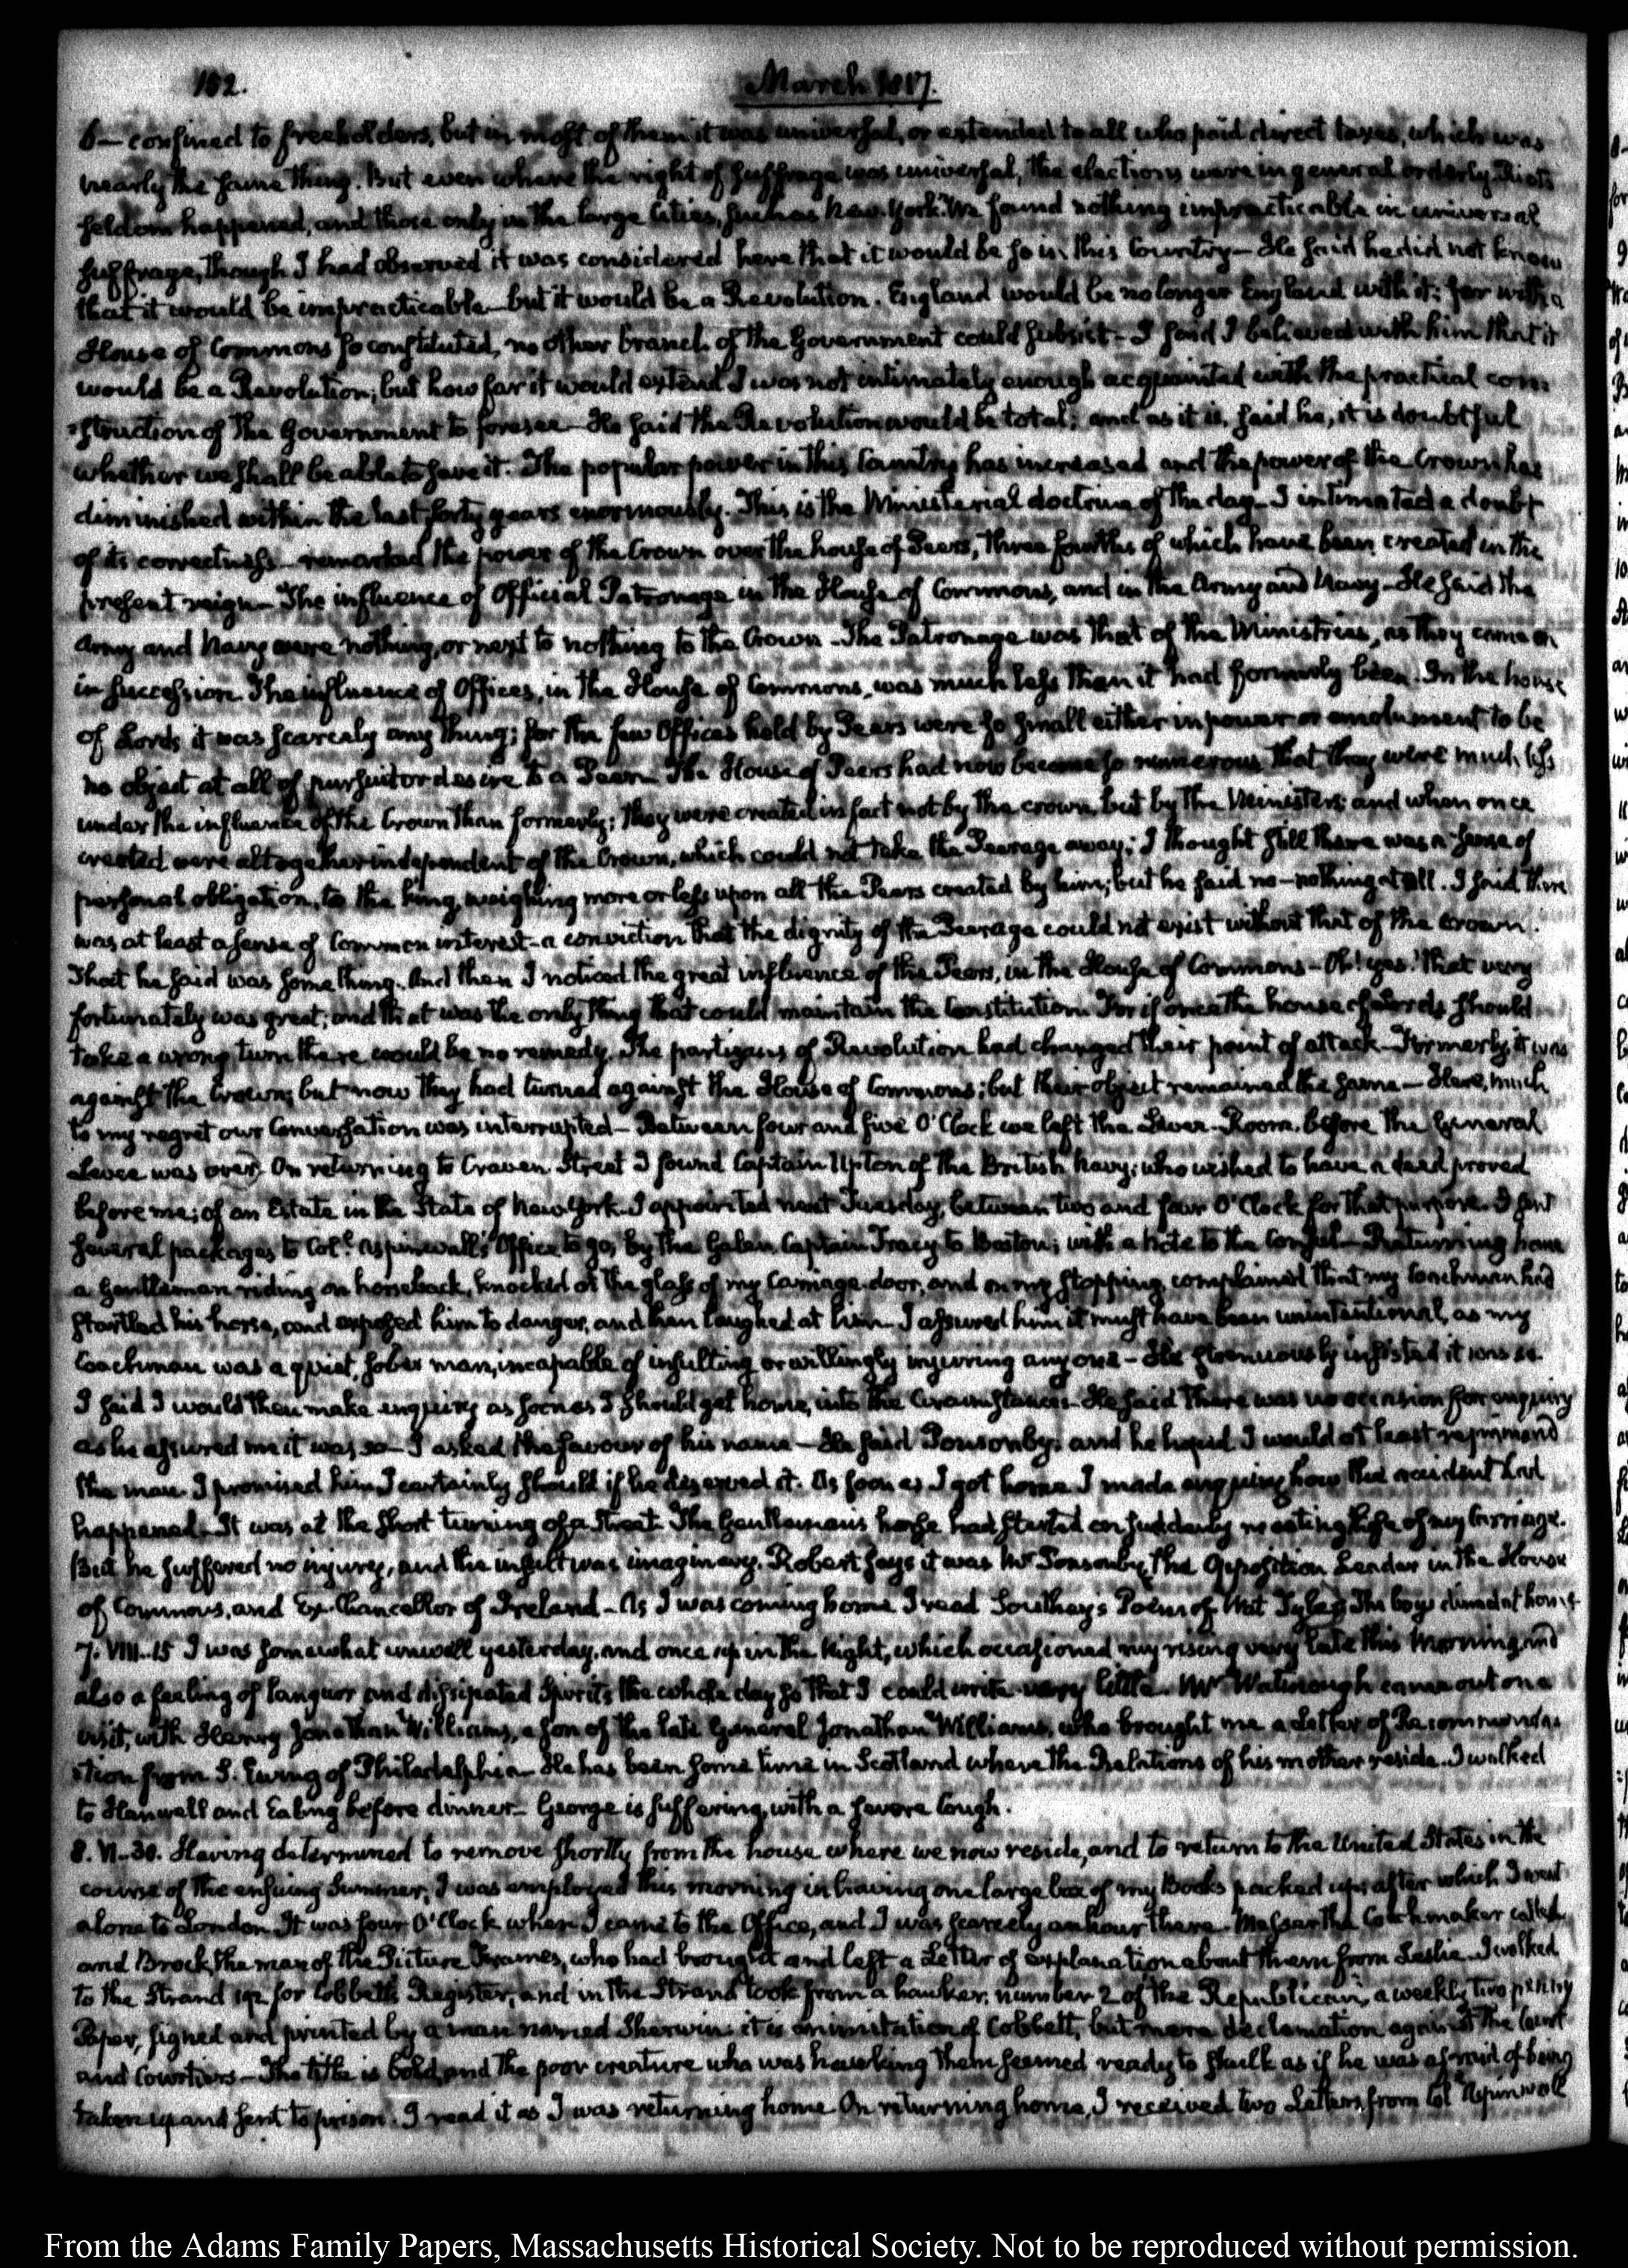 152.
March 1817.
6— confined to freeholders, but in most of them it was universal, or extended to all who paid direct taxes, which was
nearly the same thing. But even where the right of suffrage was universal, the elections were in general orderly. Riots
seldom happened, and those only in the large Cities, such as New York. We found nothing impracticable in universal
suffrage, though I had observed it was considered here that it would be so in this Country— He said he did not know
that it would be impracticable—but it would be a Revolution. England would be no longer England with it; for with a
House of Commons so constituted, no other branch of the Government could subsist— I said I believed with him that it
would be a Revolution; but how far it would extend I was not intimately enough acquainted with the practical con:
:struction of the Government to foresee— He said the Revolution would be total; and as it is, said he, it is doubtful
whether we shall be able to save it. The popular power in this Country has increased and the power of the Crown has
diminished within the last forty years enormously. This is the Ministerial doctrine of the day— I intimated a doubt
of its correctness— remarked the power of the Crown over the house of Peers, three fourths of which have been created in the
present reign— The influence of Official Patronage in the House of Commons, and in the Army and Navy— He said the
Army and Navy were nothing, or next to nothing to the Crown— The Patronage was that of the Ministries, as they came on
in succession. The influence of Offices, in the House of Commons, was much less than it had formerly been. In the house
of Lords it was scarcely any thing; for the few Offices held by Peers were so small either in power or emolument to be
no object at all of pursuit or desire to a Peer— The House of Peers had now become so numerous that they were much less
under the influence of the Crown than formerly; they were created in fact not by the crown, but by the Ministers; and when once
created were altogether independent of the Crown, which could not take the Peerage away; I thought still there was a sense of
personal obligation, to the King, weighing more or less upon all the Peers created by him; but he said no—nothing at all. I said there
was at least a sense of common interest— a conviction that the dignity of the Peerage could not exist without that of the Crown.
That he said was something. And then I noticed the great influence of the Peers, in the House of Commons— Oh! yes! that very
fortunately was great; and that was the only thing that could maintain the Constitution. For if once the house of Lords should
take a wrong turn there would be no remedy. The partizans of Revolution had changed their point of attack— Formerly, it was
against the Crown; but now they had turned against the House of Commons; but their object remained the same— Here, much
to my regret our Conversation was interrupted— Between four and five O'Clock we left the Levee-Room, before the General
Levee was over. On returning to Craven Street I found Captain Upton of the British Navy; who wished to have a deed proved
before me; of an Estate in the State of New York. I appointed next Tuesday, between two and four O'Clock for that purpose. I sent
several packages to Col.l Aspinwall's Office to go, by the Galen, Captain Tracy to Boston; with a note to the Consul— Returning home
a Gentleman riding on horseback, knocked at the glass of my Carriage door, and on my stopping, complained that my Coachman had
startled his horse, and exposed him to danger, and then laughed at him— I assured him it must have been unintentional, as my
Coachman was a quiet, sober man, incapable of insulting or willingly injuring any one— He strenuously insisted it was so
I said I would then make enquiry as soon as I should get home, into the Circumstances— He said there was no occasion for enquiry
as he assured me it was so— I asked the favour of his name— He said Ponsonby; and he hoped I would at least reprimand
the man. I promised him I certainly should if he deserved it. As soon as I got home I made enquiry how this accident had
happened— It was at the short turning of a Street. The Gentleman's horse had started on suddenly meeting those of my Carriage.
But he suffered no injury, and the insult was imaginary. Robert says it was Mr. Ponsonby, the Opposition Leader in the House
of Commons, and Ex-Chancellor of Ireland— As I was coming home I read Southey's Poem of Wat Tyler. The boys dined at home
7. VIII..15 I was somewhat unwell yesterday, and once up in the Night, which occasioned my rising very late this Morning, and
also a feeling of languor and dissipated Spirits the whole day so that I could write very little— Mr. Watmough came out on a
visit, with Henry Jonathan Williams, a son of the late General Jonathan Williams, who brought me a Letter of Recommenda:
:tion from S. Ewing of Philadelphia— He has been some time in Scotland where the Relations of his mother reside. I walked
to Hanwell and Ealing before dinner— George is suffering with a severe Cough.
8. VI..30. Having determined to remove shortly from the house where we now reside, and to return to the United States in the
course of the ensuing Summer, I was employed this morning in having one large box of my Books packed up; after which I went
alone to London. It was four O'Clock when I came to the Office, and I was scarcely an hour there— the Coachmaker called
and Brock, the man of the Picture Frames, who had brought and left a Letter of explanation about them from Leslie. I walked
to the Strand 192 for Cobbett's Register, and in the Strand took from a hawker, number 2 of the Republican, a weekly two penny
Paper, signed and printed by a man named Sherwin. it is an imitation of Cobbett, but mere declamation against the Court
and Courtiers— The title is bold, and the poor creature who was hawking them seemed ready to skulk as if he was afraid of being
taken up and sent to prison. I read it as I was returning home On returning home, I received two Letters, from Col. Aspinwall
From the Adams Family Papers, Massachusetts Historical Society. Not to be reproduced without permission.